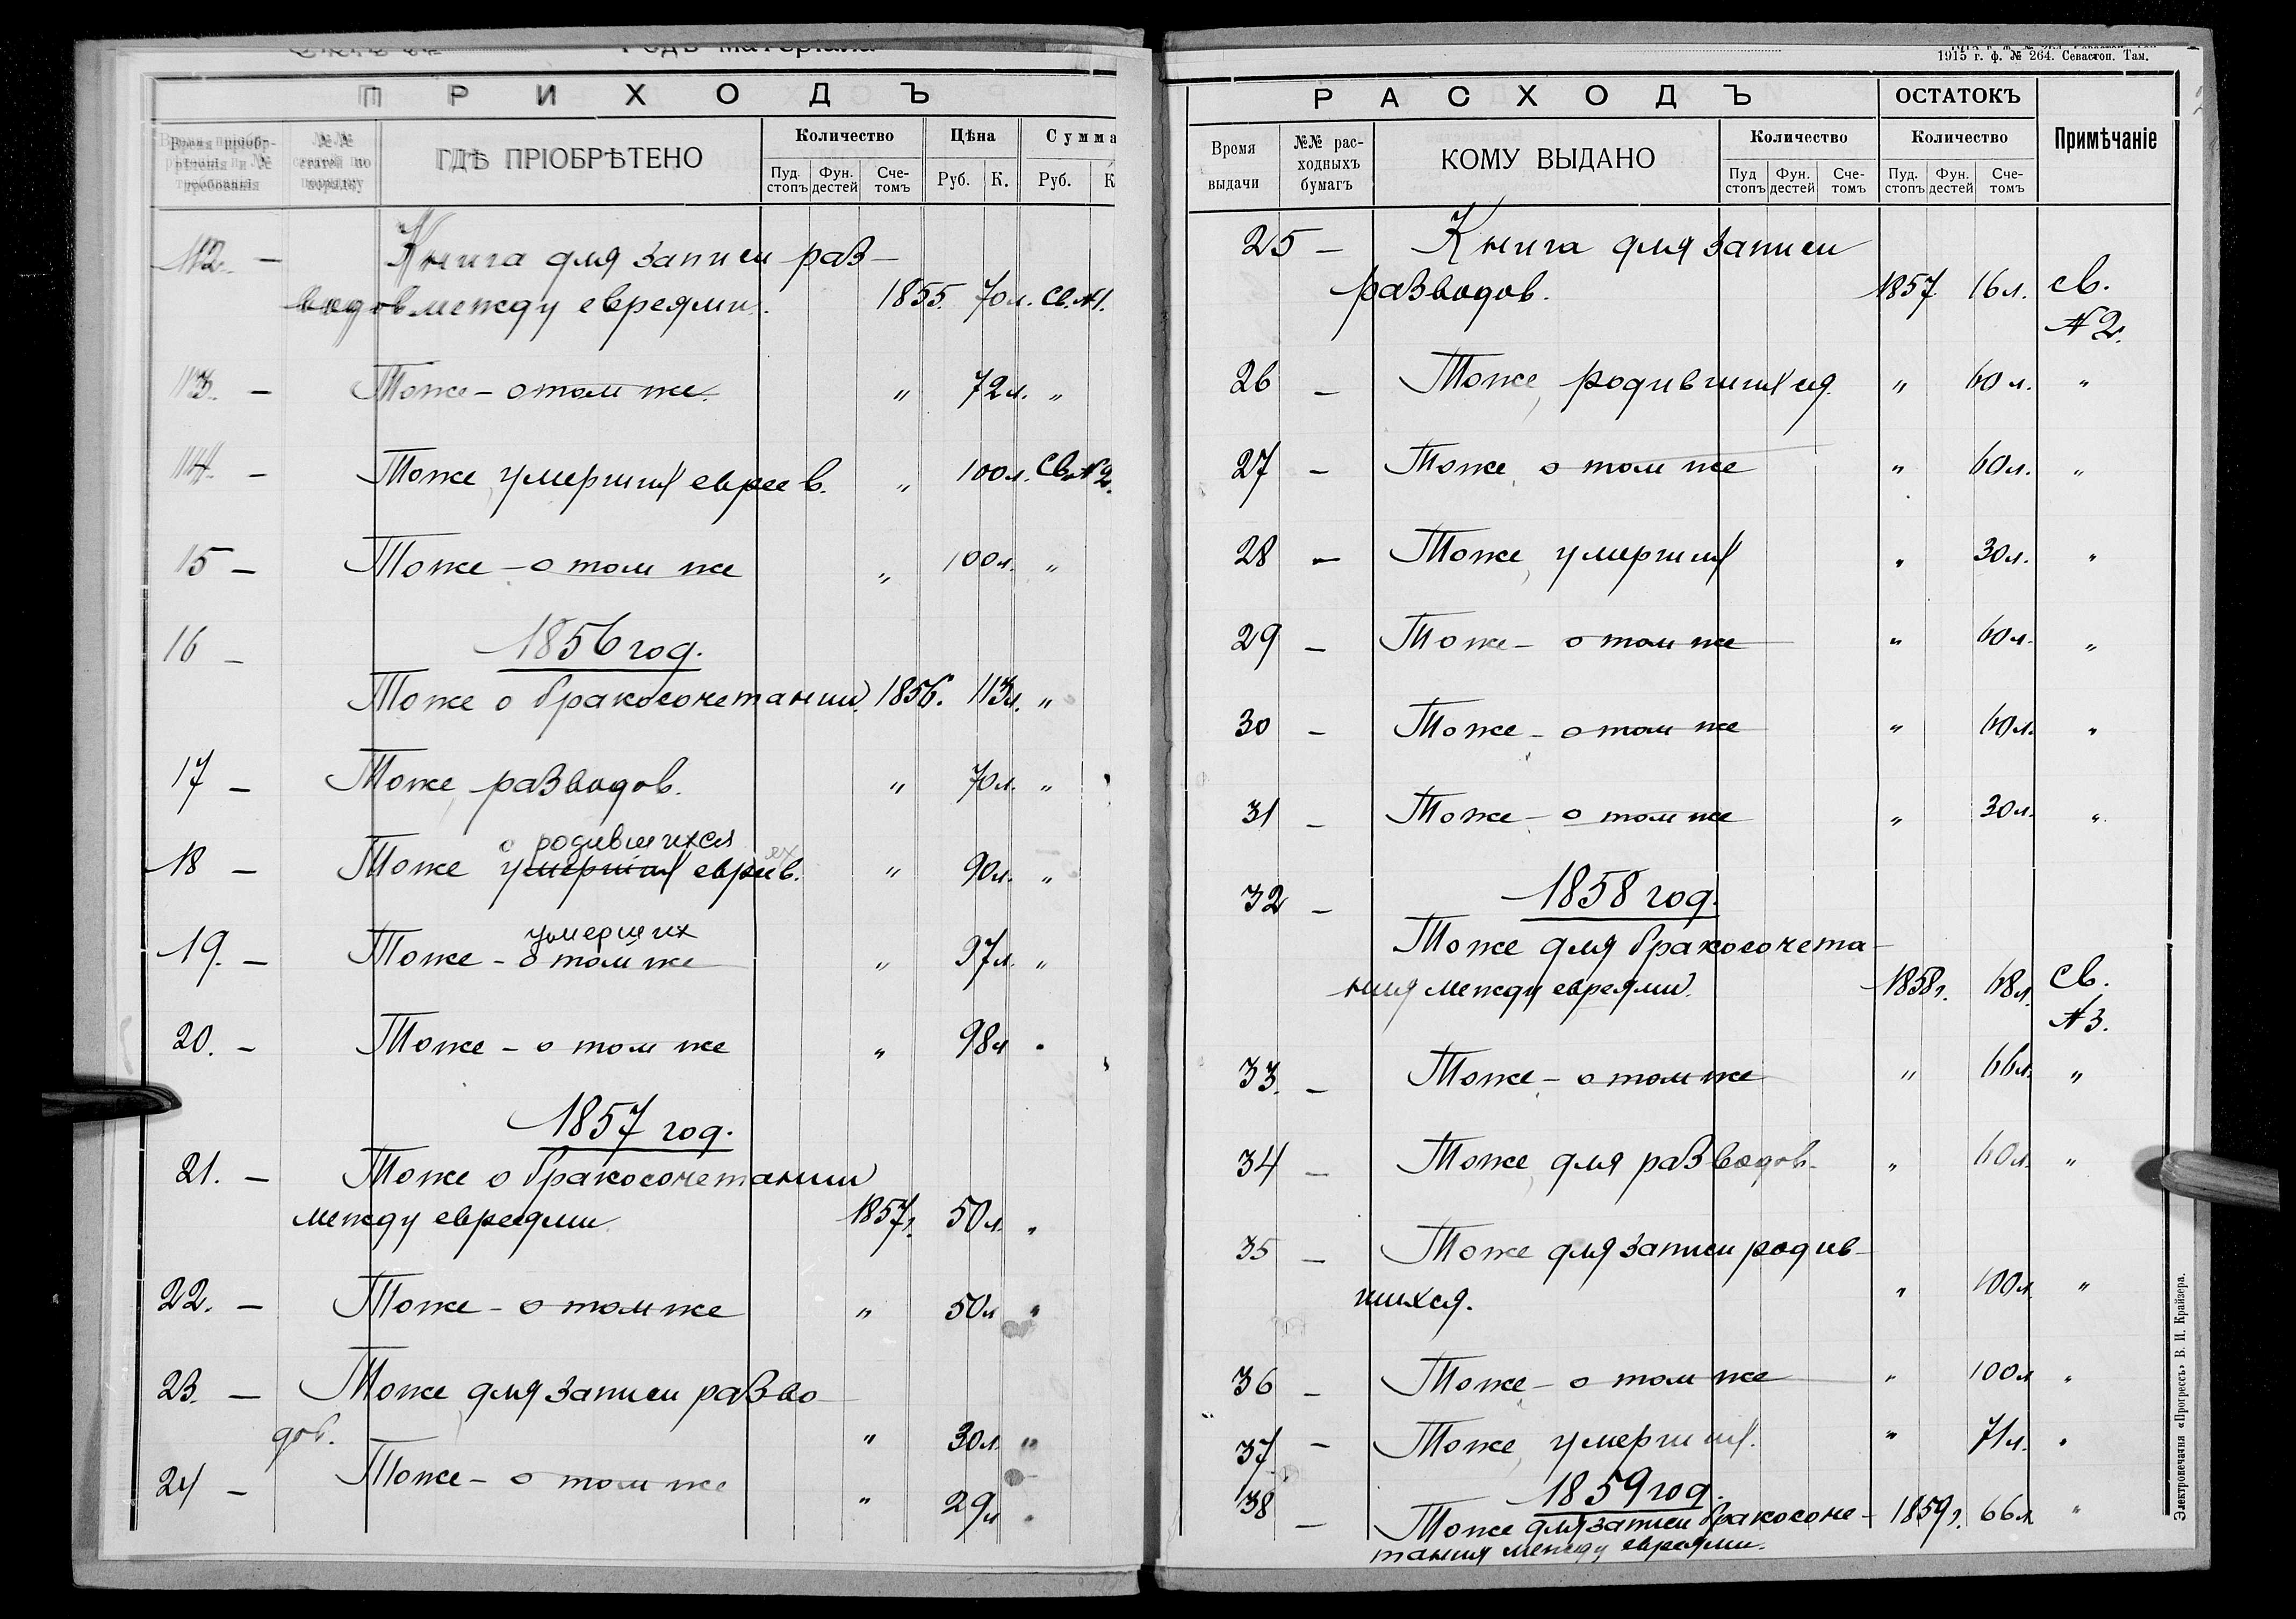 Родъ матеріала
ПРИХОДЪ
Время пріобрѣтенія и № требованія
№№ статей по порядку
ГДѢ ПРІОБРѢТЕНО
Количество
Цѣна
Сумма
Пуд. стопъ
Фун. дестей
Сче-томъ
Руб.
К.
Руб.
К
12. — Книга для записи раз-
водов между евреями. 1855. 70л. Св. №1.
13. — Тоже - о том же. " 72л. "
14. — Тоже, умерших евреев. " 100л. Св. №2.
15 — Тоже - о том же " 100л. "
16 — 1856 год.
Тоже о бракосочетании. 1856. 113л. "
17 — Тоже, разводов. " 70л. "
о родившихся
18 — Тоже умерших евреев. " 90л. "
умерших
19. — Тоже - о том же " 97л. "
20. — Тоже - о том же " 98л "
1857 год.
21. — Тоже о бракосочетании
между евреями 1857г. 50л. "
22. — Тоже - о том же " 50л "
23. — Тоже, для записи разво-
дов. " 30л. "
24 — Тоже - о том же " 29л "
1915 г. ф. № 264. Севастоп. Там.
РАСХОДЪ
ОСТАТОКЪ
Примѣчаніе
Время выдачи
№№ рас-ходныхъ бумагъ
КОМУ ВЫДАНО
Количество
Количество
Пуд стопъ
Фун. дестей
Сче-томъ
Пуд. стопъ
Фун. дестей
Сче-томъ
25 — Книга для записи
разводов. 1857 16л. св.
№ 2.
26 — Тоже, родившихся. " 60 л. "
27 — Тоже, о том же " 60л. "
28 — Тоже, умерших " 30л. "
29 — Тоже - о том же " 60л. "
30 — Тоже - о том же " 60л. "
31 — Тоже - о том же " 30л. "
32 — 1858 год.
Тоже для бракосочета-
ния между евреями. 1858г. 68л. Св.
№ 3.
33. — Тоже - о том же " 66л. "
34 — Тоже, для разводов. " 60л. "
35 — Тоже для записи родив-
шихся. " 100л. "
36 — Тоже - о том же " 100л "
37 — Тоже, умерших. " 71л. "
1859 год.
38 — Тоже для записи бракосоче- 1859г. 66л "
тания между евреями.
Электропечатня «Прогрессъ» В. И. Крайзера.